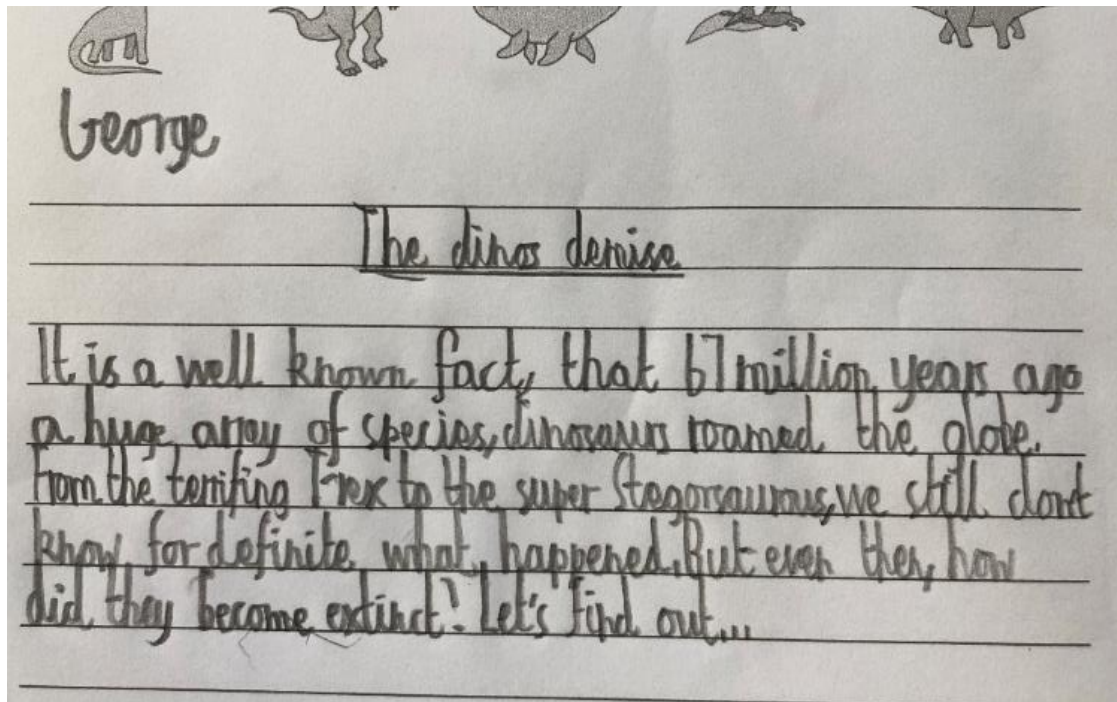 George
The dinos demise
It is a well known fact, that 67 million years ago
a huge array of species, dinosaurs roamed the globe.
From the terrifing T-rex to the super Stegorsaurus, we still dont
know for definite what happened. But even then, how
did they become extinct? Let's find out...